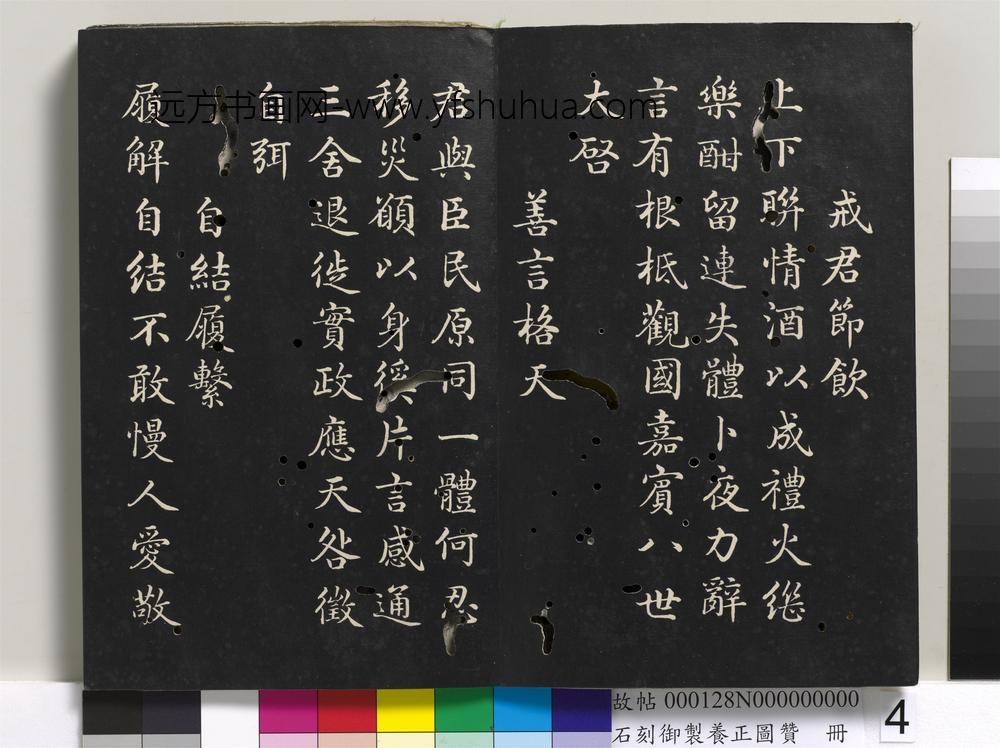 戒君節飲
上下聯情酒以成禮火繼
樂酣留連失體卜夜力辭
言有根柢觀國嘉賓八世
大啓
善言格天
君與臣民原同一體何忍
移災願以身徯片言感通
三舍退徙實政應天咎徵
自弭
自結履繫
履解自结不敢慢人愛敬
远方书画网-www.yfshuhua.com
故帖 000128N000000000
石刻御製養正圖贊 冊
4